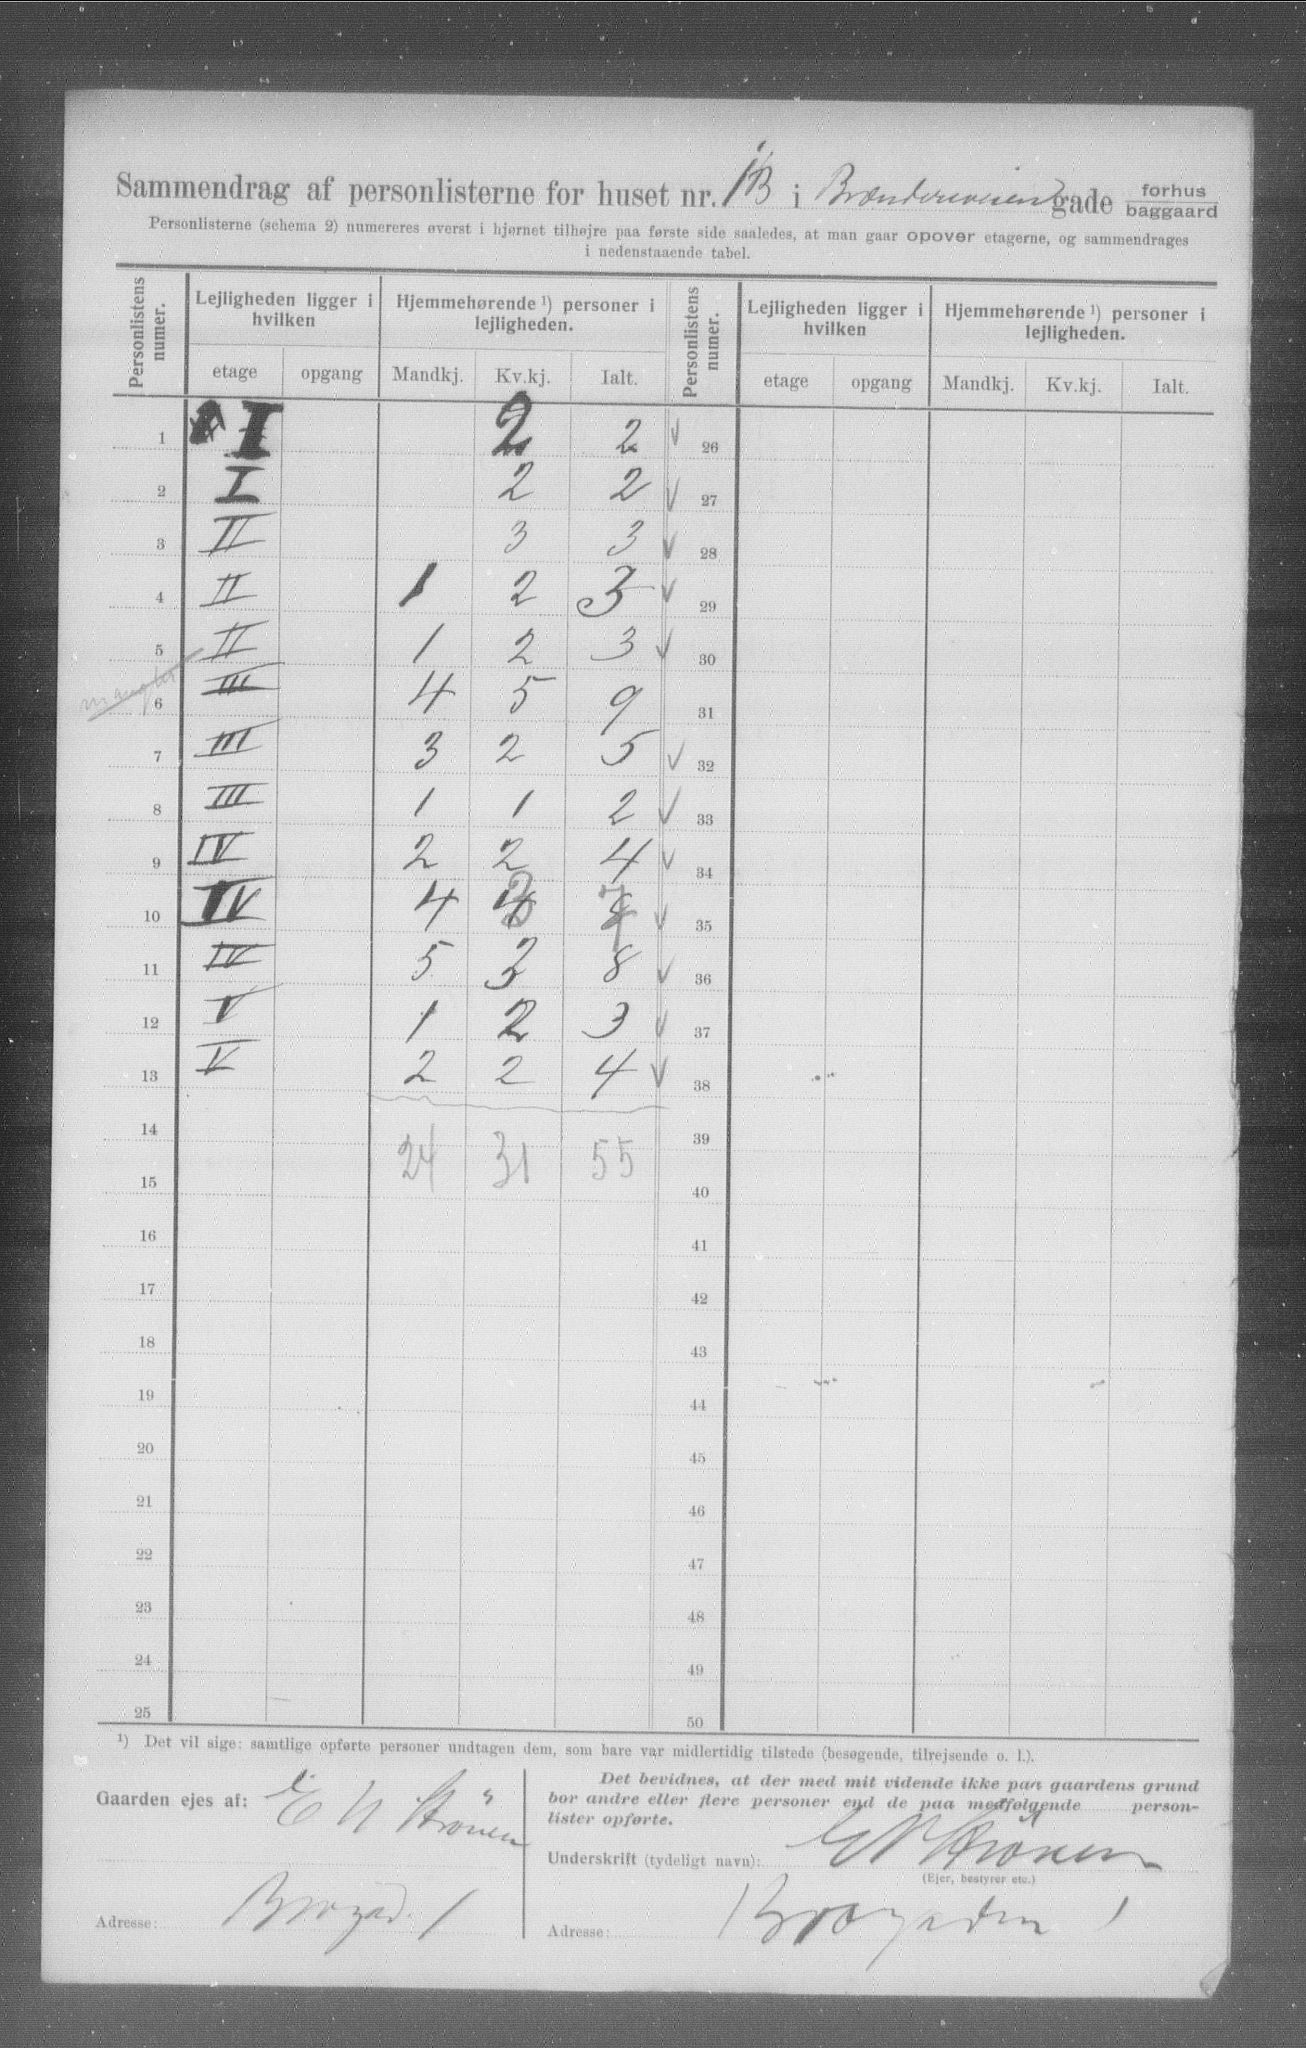 Sammendrag af personlisterne for huset nr. 1B i Brænderiveien gade forhus baggaard
Personlisterne (schema 2) numereres øverst i hjørnet tilhøjre paa første side saaledes, at man gaar opover etagerne, og sammendrages
i nedenstaaende tabel.
Personlistens numer. Lejligheden ligger i hvilken Hjemmehørende ¹) personer i lejligheden. Personlistens numer. Lejligheden ligger i hvilken Hjemmehørende ¹) personer i lejligheden.
etage opgang Mandkj. Kv.kj. Ialt. etage opgang Mandkj. Kv.kj. Ialt.
1 I 2 2 √ 26
2 I 2 2 √ 27
3 II 3 3 √ 28
4 II 1 2 3 √ 29
5 II 1 2 3 √ 30
mangler 6 III 4 5 9 31
7 III 3 2 5 √ 32
8 III 1 1 2 √ 33
9 IV 2 2 4 √ 34
10 IV 4 3 7 √ 35
11 IV 5 3 8 √ 36
12 V 1 2 3 √ 37
13 V 2 2 4 √ 38
14 24 31 55 39
15 40
16 41
17 42
18 43
19 44
20 45
21 46
22 47
23 48
24 49
25 50
¹) Det vil sige: samtlige opførte personer undtagen dem, som bare var midlertidig tilstede (besøgende, tilrejsende o. l.).
Gaarden ejes af:
Det bevidnes, at der med mit vidende ikke paa gaardens grund
bor andre eller flere personer end de paa medfølgende person-
lister opførte.
Underskrift (tydeligt navn):
(Ejer, bestyrer etc.)
Adresse: 1
Adresse: 1